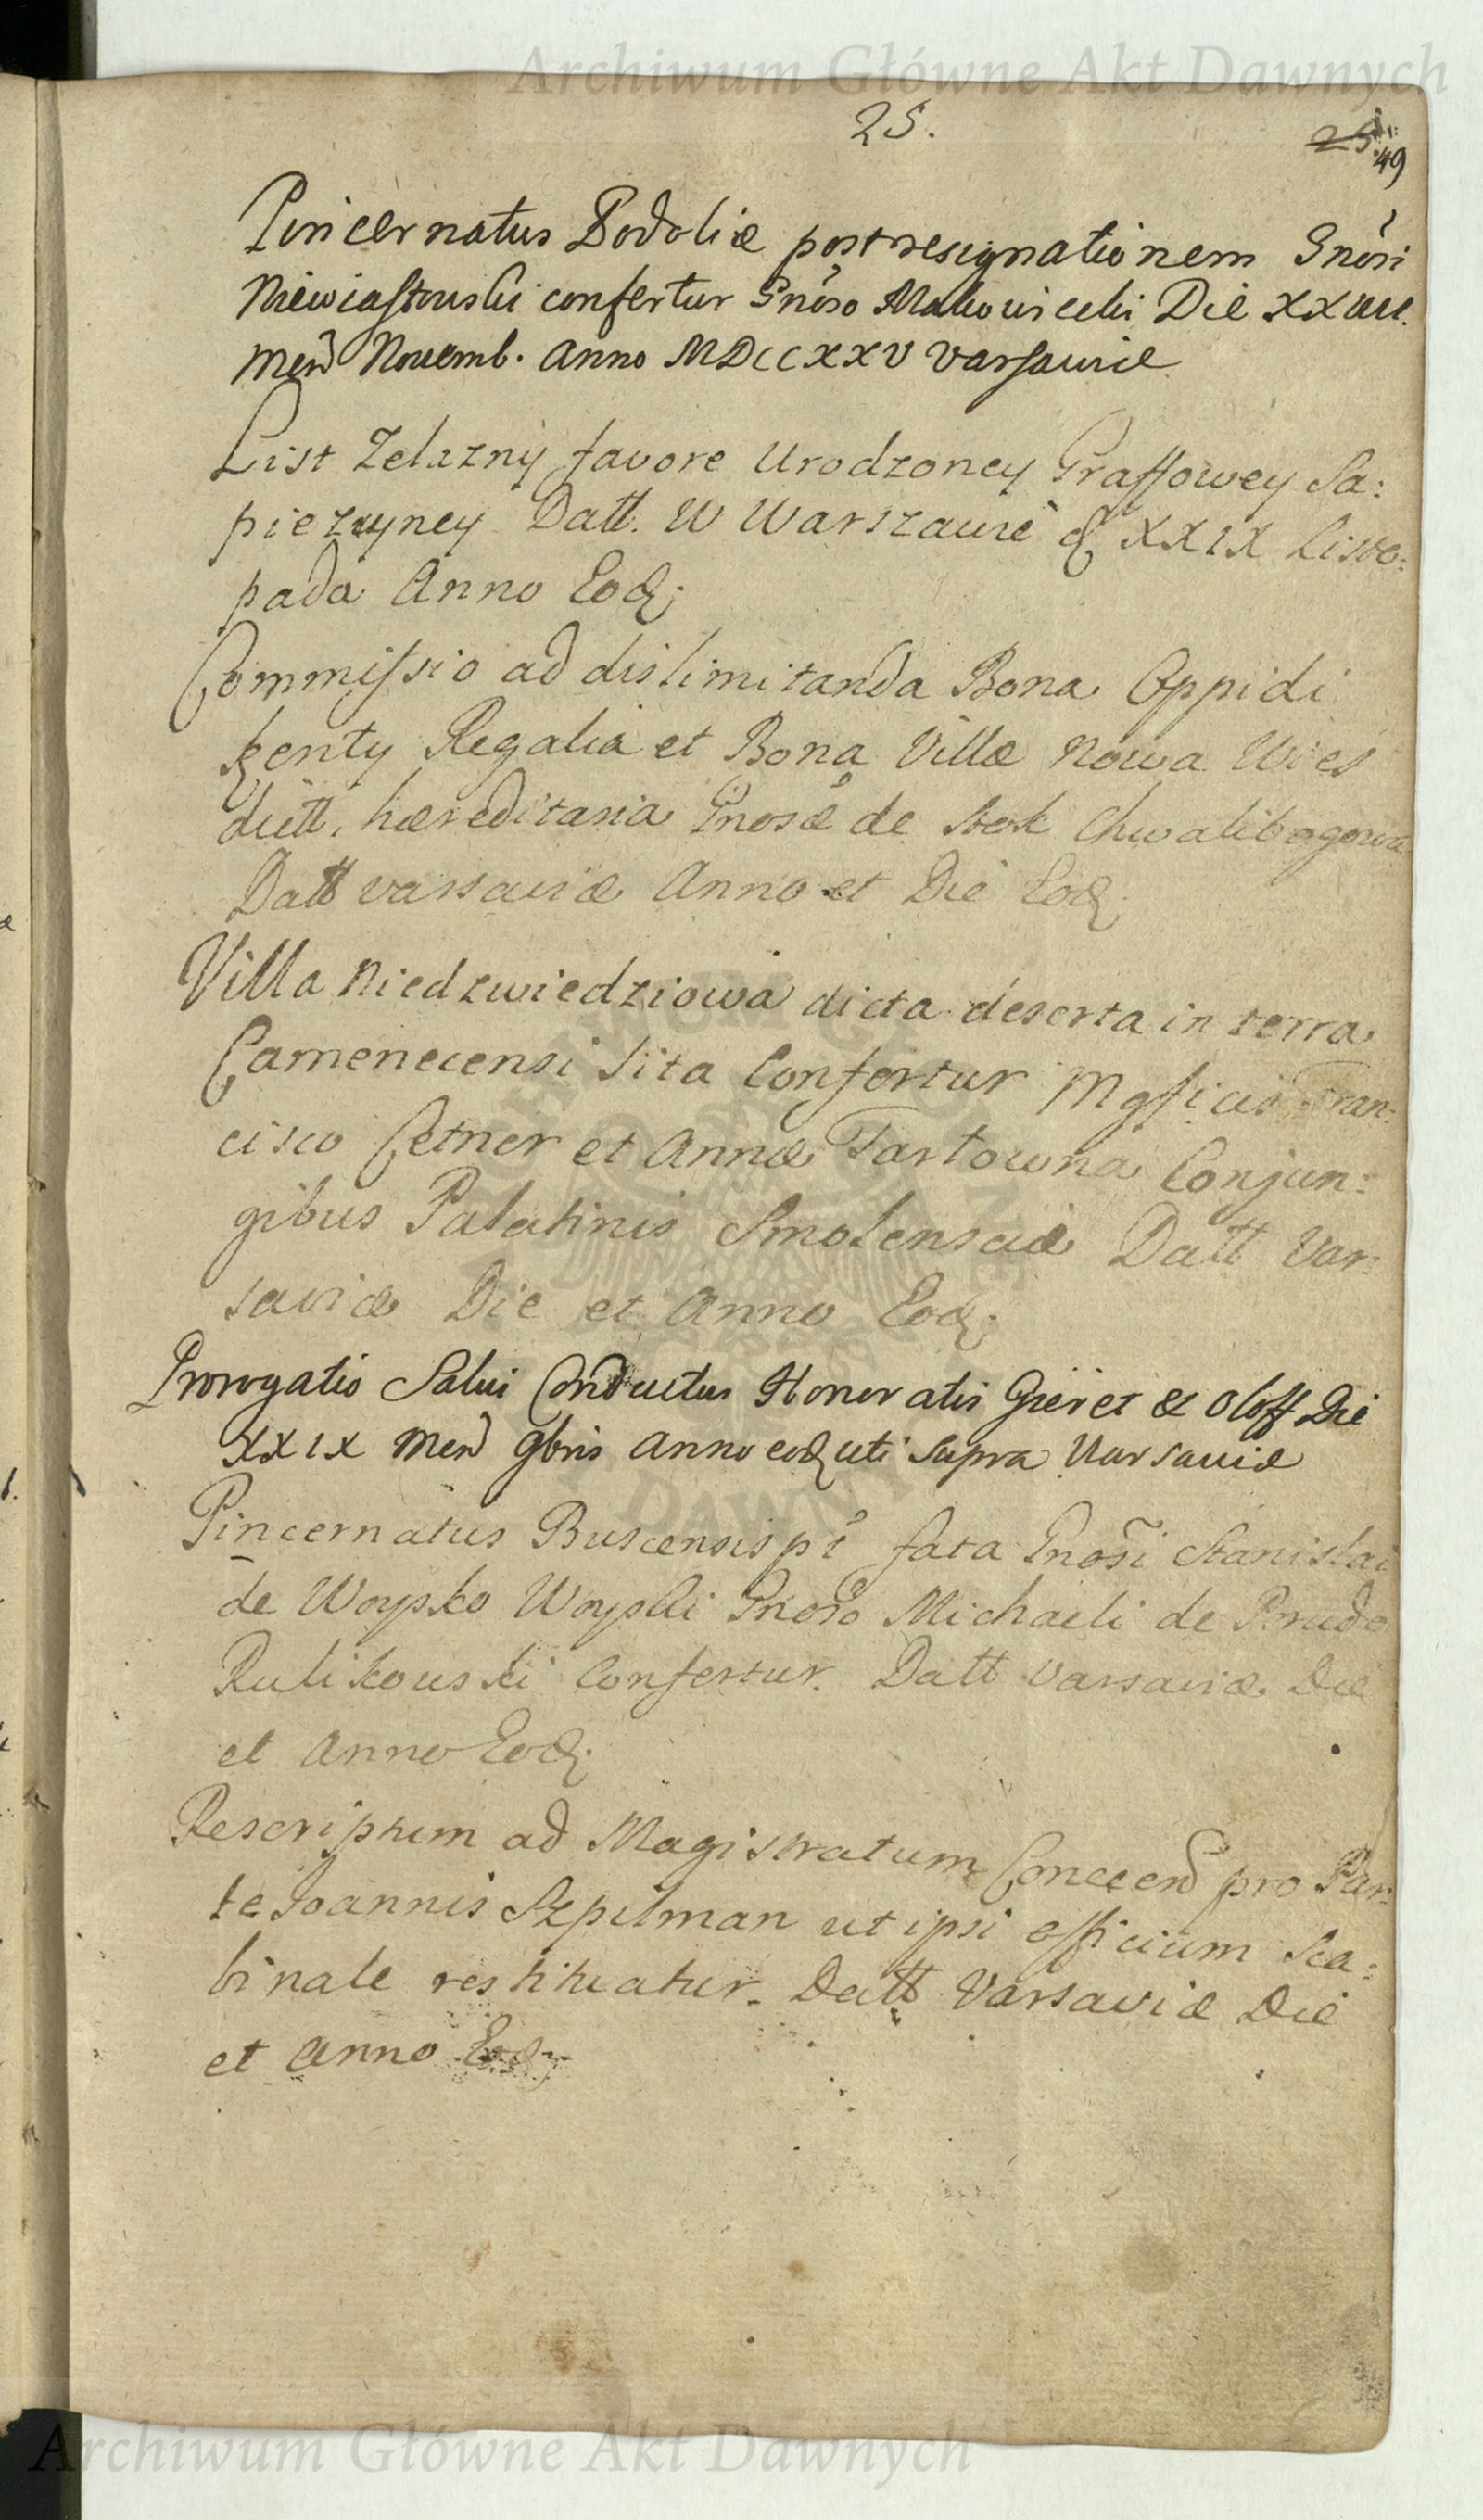 Archiwum Główne Akt Dawnych
25.
25. 49
Pincernatus Podoliæ post resignationem Gnosi
Niewiastowski confertur Gnoso Makowiecki Die XXVIII.
Men Novemb. Anno MDCCXXV Varsaviæ
List Zelazny favore Urodzoney Graffowey Sa:
piezyney Datt. W Warszawie d XXIX Listo:
pada Anno Eoq;
Commissio ad dislimitanda Bona Oppidi
Kenty Regalia et Bona Villæ Nowa Wies
dict. hæreditaria Gnosæ de Stok Chwalibogowa
Datt Varsaviæ Anno et Die Eoq;
Villa Niedzwiedziowa dicta deserta in terra
Camenecensi Sita Confertur Mgficis Fran:
cisco Cetner et Annæ Tartowna Conjun:
gibus Palatinis Smolensciæ Datt Var:
saviæ Die et Anno Eoq;
Prorogatio Salvi Conductus Honoratis Grieret & Oloff Die
XXIX Men 9bris Anno eoq uti Supra Varsaviæ
Pincernatus Buscensis pt fata Gnosi Stanislai
de Woysko Woyski Gnoso Michaeli de
Rulikowski Confertur. Datt Varsaviæ Die
et Anno Eoq;
Rescriptum ad Magistratum Concen pro Par
te Joannis Szpilman ut ipsi officium Sca:
binale restituatur. Datt Varsaviæ Die
et Anno Eoq;
Archiwum Główne Akt Dawnych